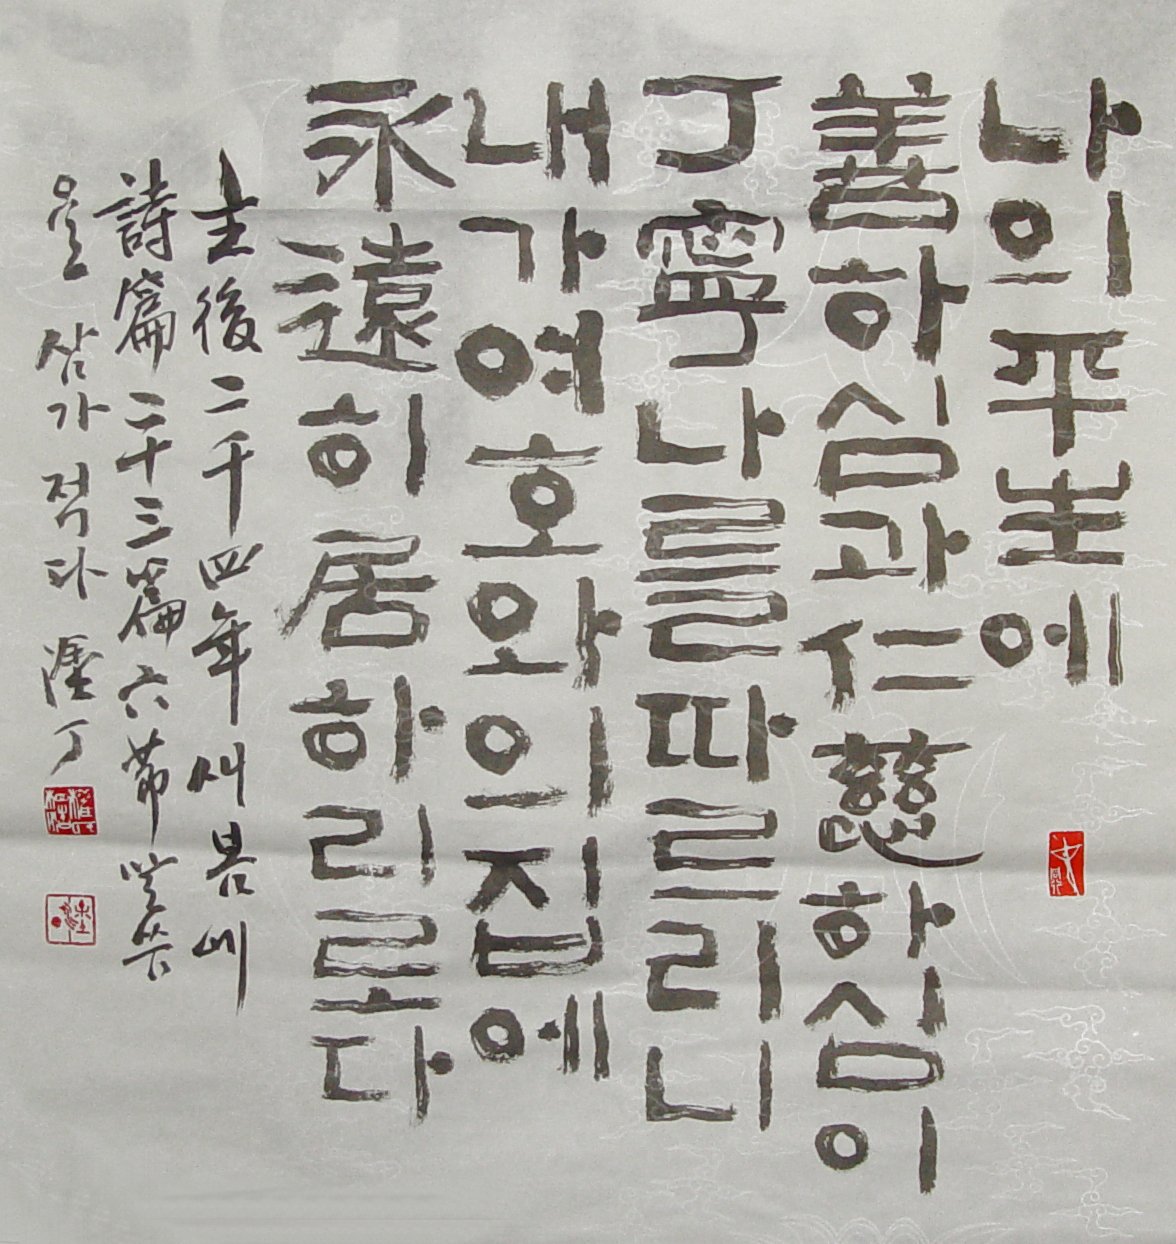 나의平生에
善하심과仁慈하심이
丁寧나를따르리니
내가여호와의집에
永遠히居하리로다
主後二千四年 새봄에
詩篇二十三篇六節 말씀
을 삼가 적다 丁